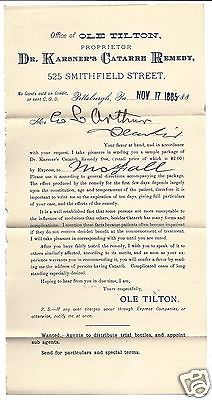 Office of
OLE TILTON,
PROPRIETOR
DR. KARSNER'S CATARRH REMEDY,
525 SMITHFIELD STREET.
No Goods sold on Credit,
or sent C. O. D.
Pittsburgh, Pa. NOV 17 1885 188
Geo C Arthur
Your favor at hand, and in accordance with
your request, I take pleasure in sending you a sample package of
Dr. Karsner's Catarrh Remedy free, (retail price of which is $2.00)
by Express, to
Please use it according to general directions accompanying the package.
The effect produced by the remedy for the first few days depends largely
upon the constitution, age and temperament of the individual, but in order
to obtain the best results it should be used, according to directions, for at
least seven days.
It is a well established fact that some persons are more susceptible to the
influence of medicine than others, besides Catarrh has many forms and
complications. I mention these facts because patients often become impatient
if they do not receive decided benefit at the commencement of treatment.
You will be required to return the remedy unless used according to
directions.
After you have fairly tested the remedy, I wish you to speak of it to
others similarly affected, according to its merits, and should you, in con-
sequence, deem it worthy of recommending you will confer a favor by send-
ing me the address of persons having Catarrh. Complicated cases of long
standing especially desired.
Hoping to hear from you in due time, I am,
Yours respectfully,
OLE TILTON.
P. S.—If any over charges occur through Express Companies, or
otherwise, notify me at once.
Wanted. Agents to distribute trial bottles, and appoint
sub agents.
Send for particulars and special terms.